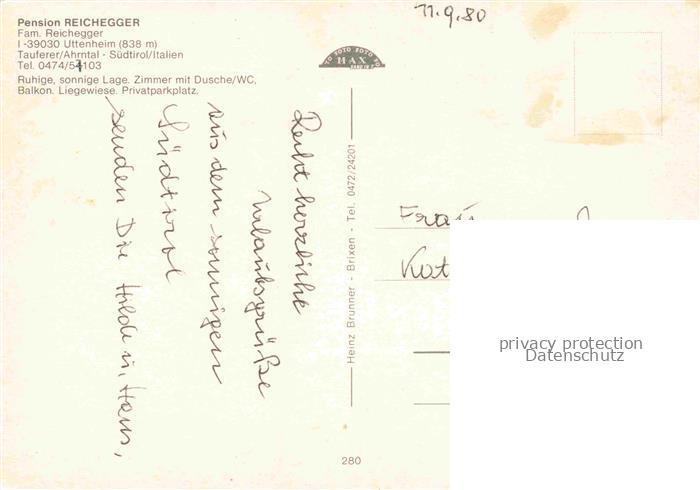 Pension REICHEGGER
Fam. Reichegger
I-39030 Uttenheim (838 m)
Tauferer/Ahrntal - Südtirol/Italien
Tel. 0474/54103
Ruhige, sonnige Lage. Zimmer mit Dusche/WC,
Balkon. Liegewiese. Privatparkplatz.
11.9.80
FOTO FOTO FOTO
HAX
Recht herzliche
Urlaubsgrüße
aus dem sonnigen
Südtirol
senden Dir Hilde u. Hans,
Heinz Brunner - Brixen - Tel. 0472/24201
280
Frau
Kat
privacy protection
Datenschutz